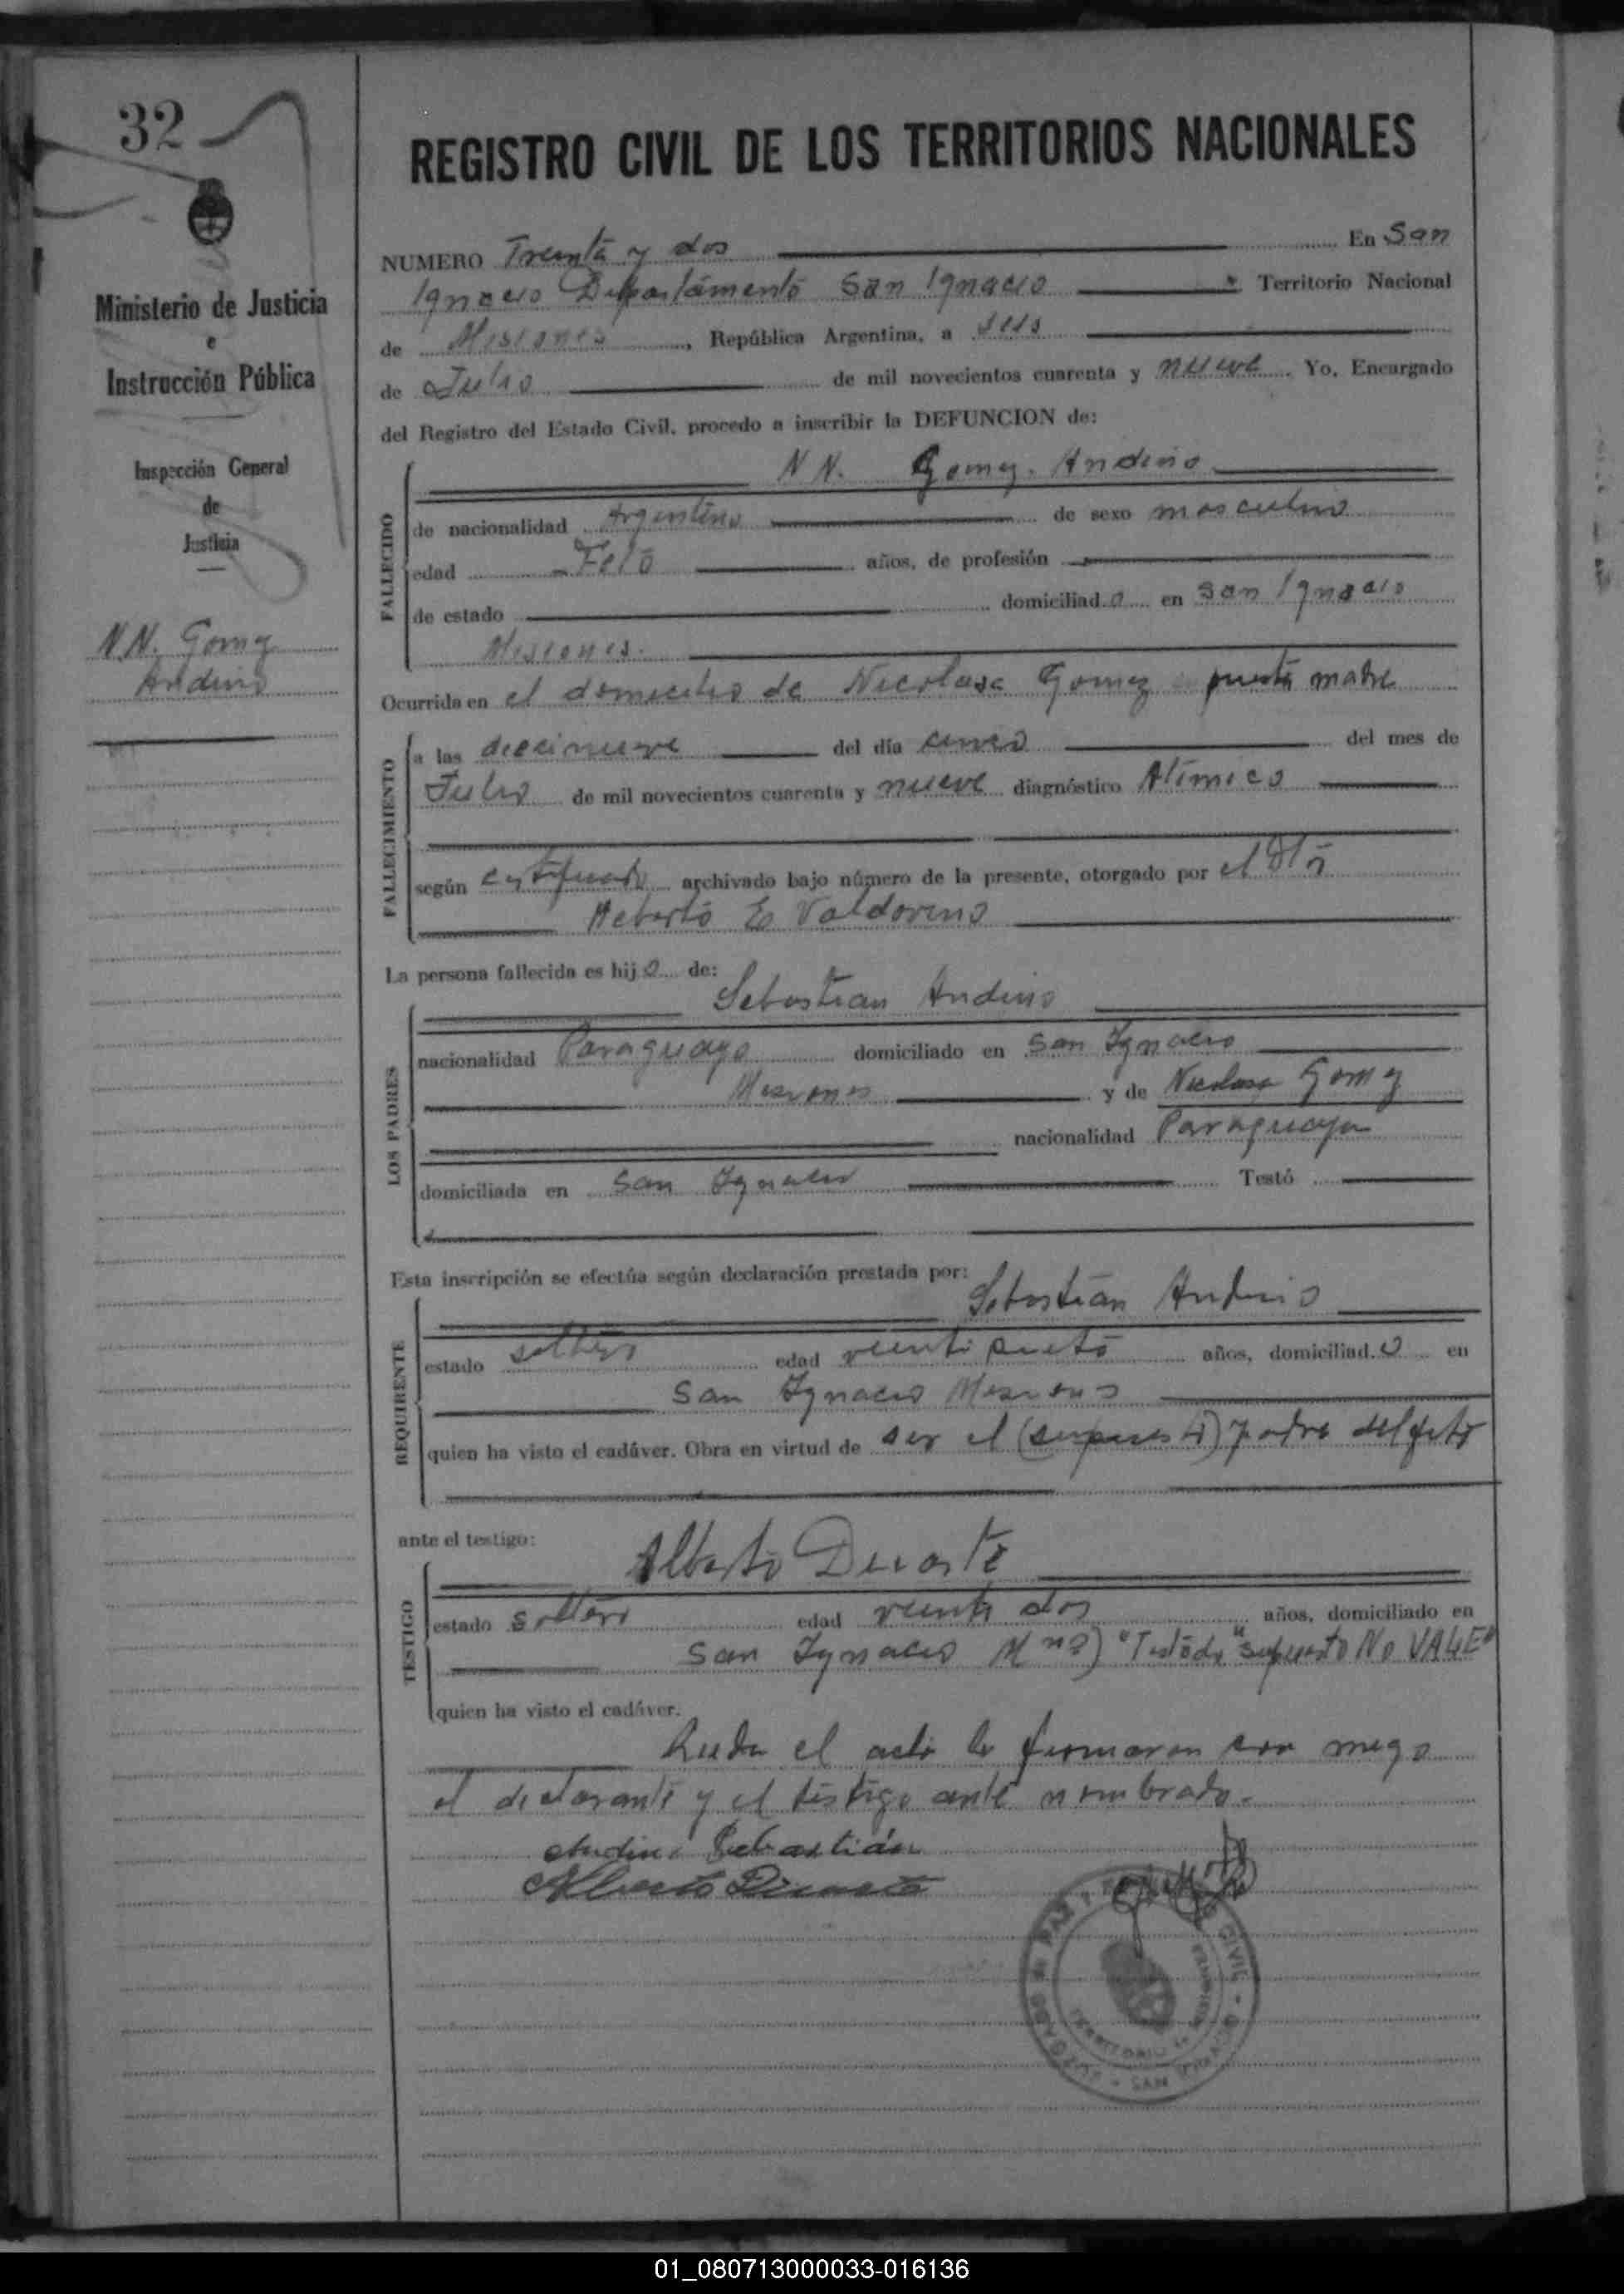 32
Ministerio de Justicia
e
Instrucción Pública
Inspección General
de
Justicia
N.N. Gomez
Andino
REGISTRO CIVIL DE LOS TERRITORIOS NACIONALES
NUMERO Treinta y dos En San
Ignacio Departamento San Ignacio Territorio Nacional
de Misiones, República Argentina, a seis
de Julio de mil novecientos cuarenta y nueve. Yo, Encargado
del Registro del Estado Civil, procedo a inscribir la DEFUNCION de:
N N. Gomez. Andino
FALLECIDO
de nacionalidad Argentino de sexo masculino
edad Feto años, de profesión
de estado domiciliado en San Ignacio
Misiones.
Ocurrida en el domicilio de Nicolasa Gomez madre
FALLECIMIENTO
a las diecinueve del día cinco del mes de
Julio de mil novecientos cuarenta y nueve diagnóstico
según certificado archivado bajo número de la presente, otorgado por el
E Valdovino
La persona fallecida es hijo de:
Sebastian Andino
LOS PADRES
nacionalidad Paraguayo domiciliado en San Ignacio
Misiones y de Nicolasa Gomez
nacionalidad Paraguaya
domiciliada en San Ignacio Testó
Esta inscripción se efectúa según declaración prestada por:
Sebastián Andino
REQUIRENTE
estado soltero edad años, domiciliado en
San Ignacio Misiones
quien ha visto el cadáver. Obra en virtud de ser el (supuesto) padre del feto
ante el testigo:
Alberto Duarte
TESTIGO
estado soltero edad veinti dos años, domiciliado en
San Ignacio "supuesto NO VALE"
quien ha visto el cadáver.
el acta la firmaron con migo
el declarante y el testigo ante nombrado.
Andino Sebastián
Alberto Duarte
01_080713000033-016136